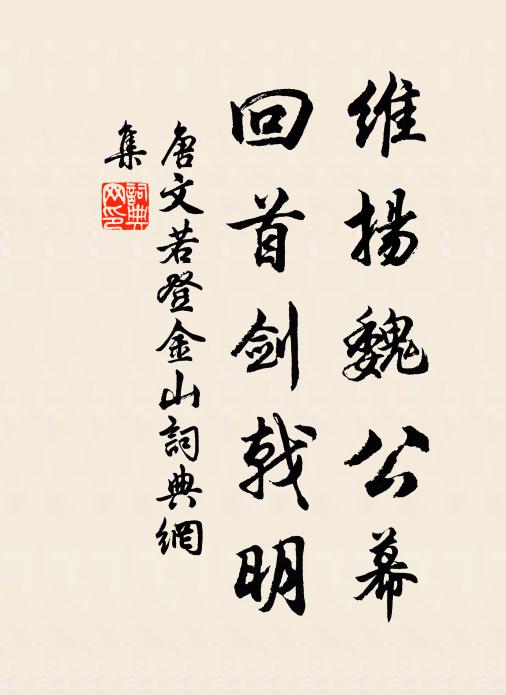 维揚魏公幕
回首剑戟明
唐文若登金山詞典網
集
詞典
网印